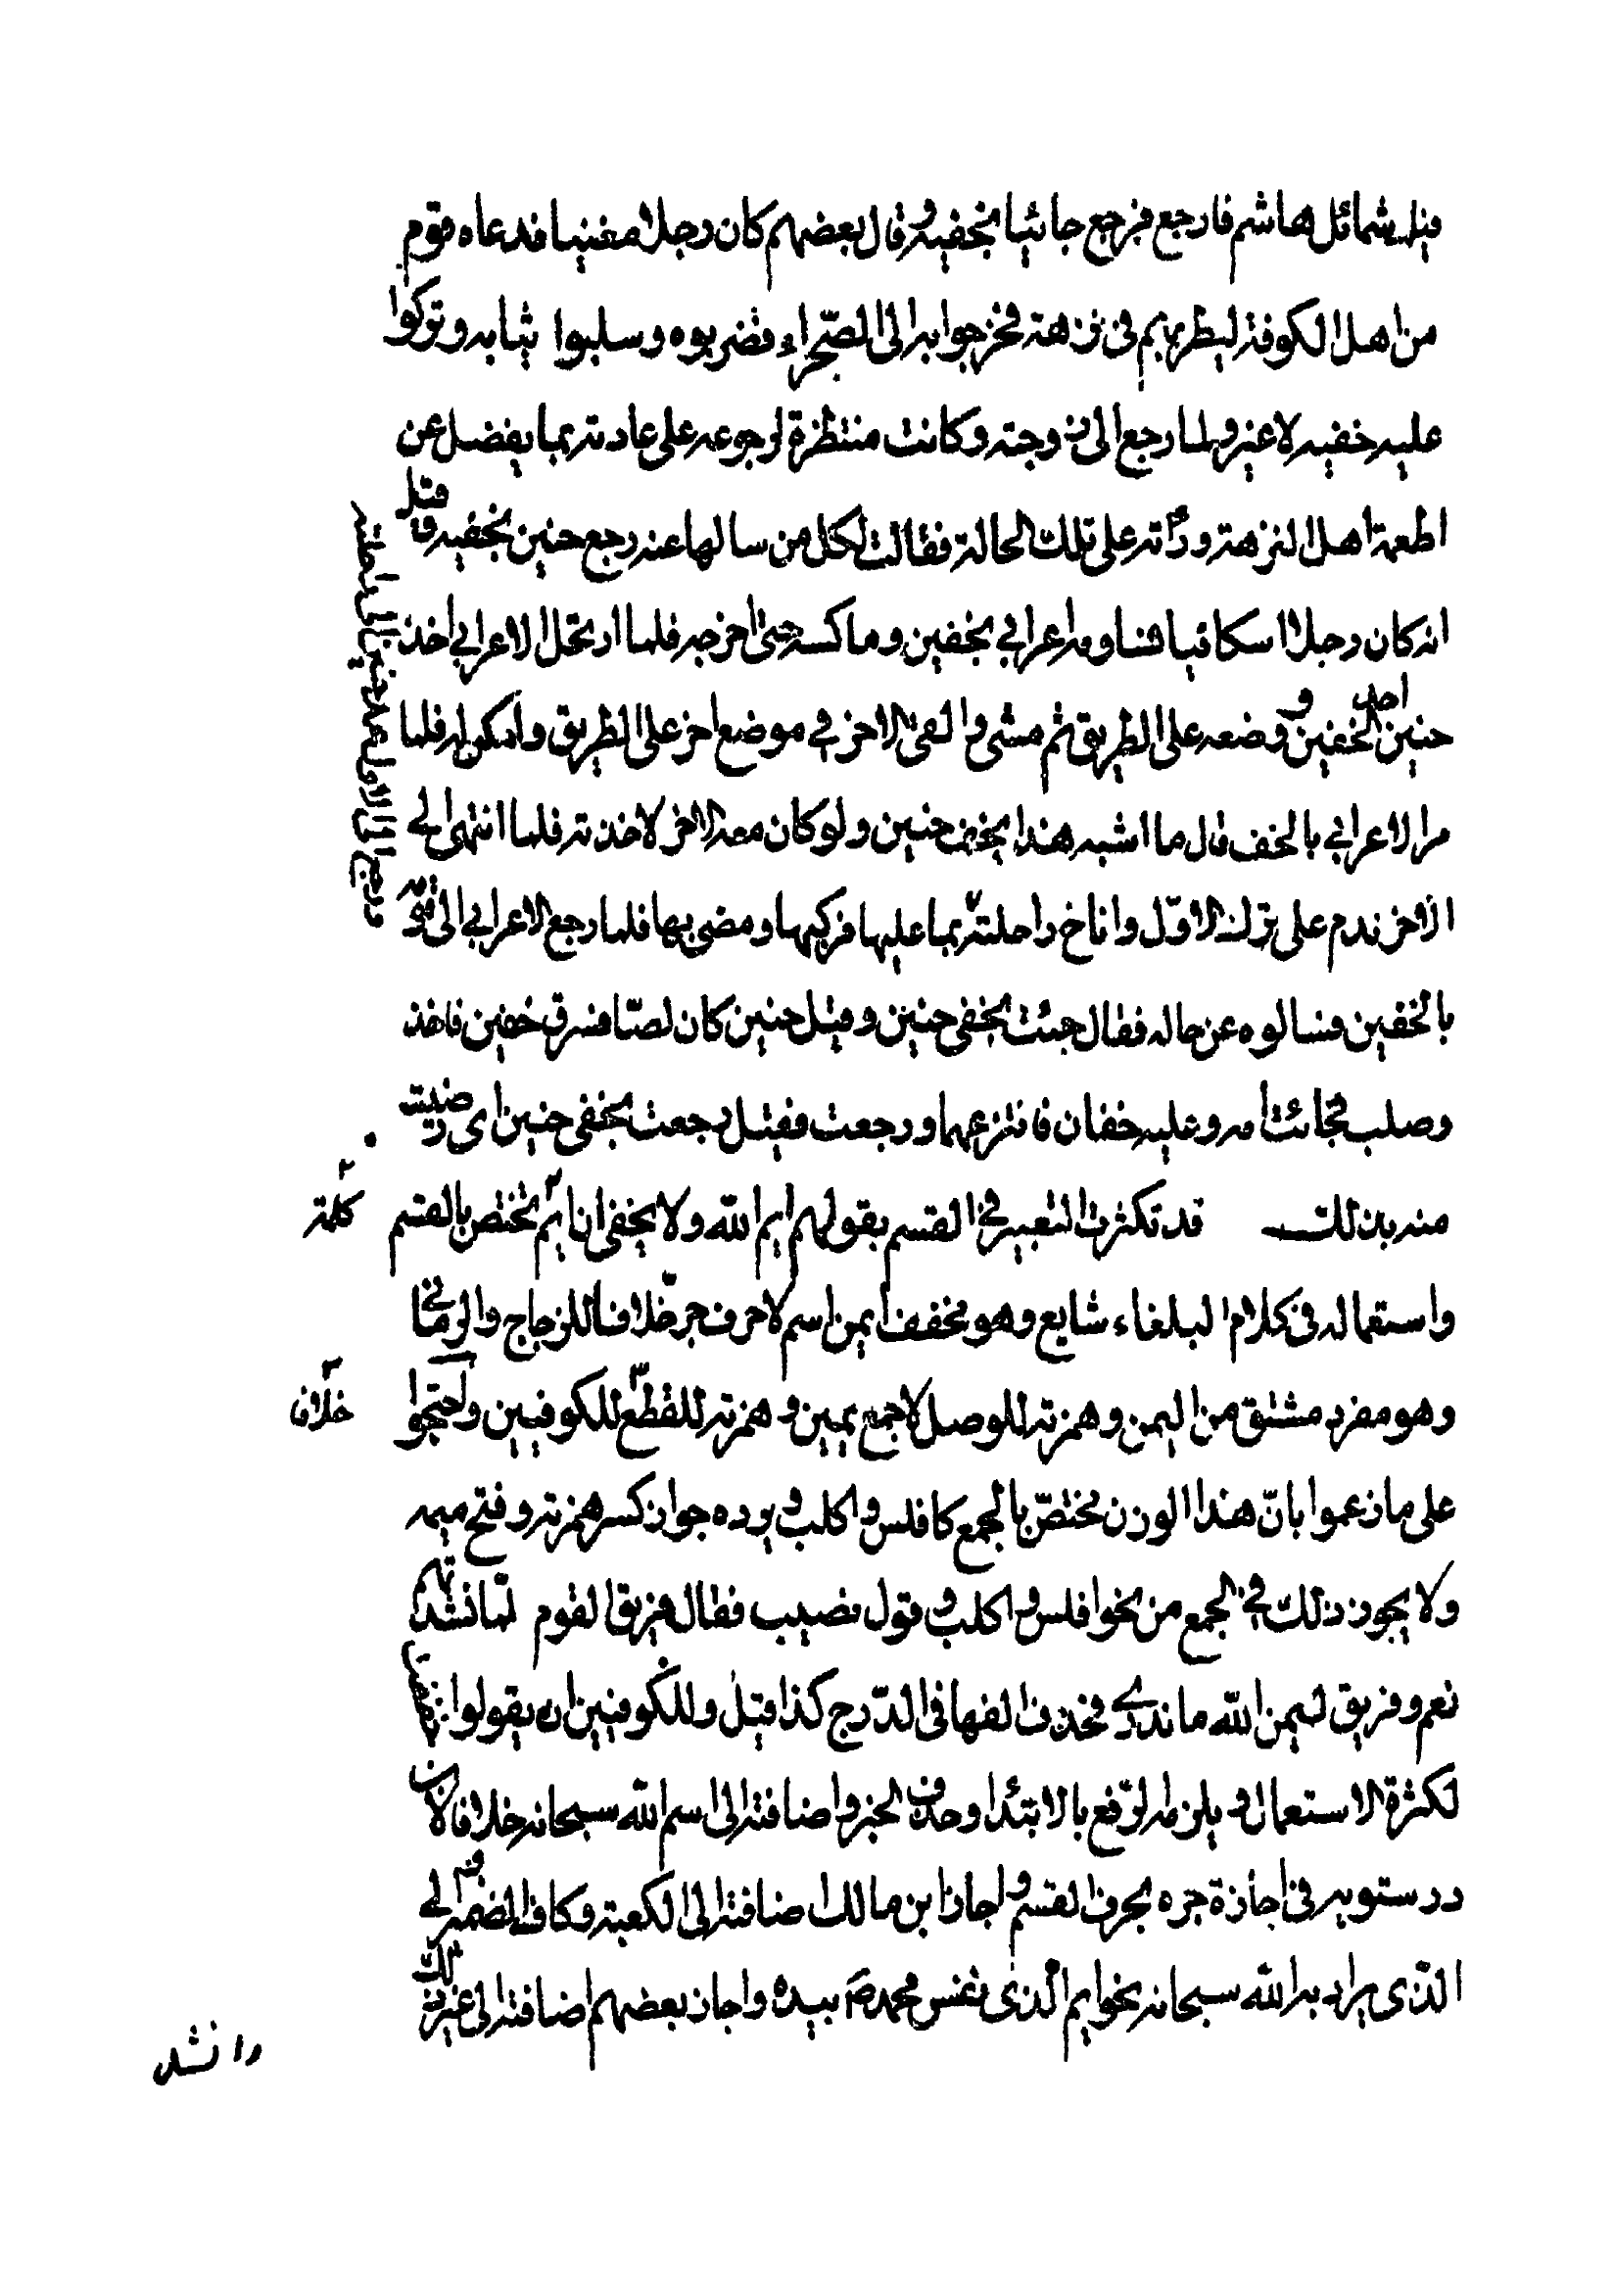 فيك شمائل هاشم فارجع فرجع خائبا بخفيه وقال بعضهم كان رجلا مغنيا فدعاه قوم
من اهل الكوفة ليطربهم في نزهة فخرجوا به الى الصّحراء فضربوه وسلبوا ثيابه وتركوا
عليه خفيه لا غير ولما رجع الى زوجته وكانت منتظرة لرجوعه على عادته بما يفضل عن
اطعمة اهل النزهة ورأته على تلك الحالة فقالت لكل من سالها عنه رجع حنين بخفيه وقيل
انه كان رجلا اسكافيا فساومه اعرابي بخفين وماكسه حتى احرجه فلما ارتحل الاعرابي اخذ
حنين احد الخفين ووضعه على الطريق ثم مشى والقى الاخر في موضع اخر على الطريق وامكن له فلما
مر الاعرابي بالخف قال ما اشبه هذا بخف حنين ولو كان معه الاخر لاخذته فلما انتهى الى
الاخر ندم على ترك الاوّل واناخ راحلته بما عليها فركبها ومضى بها فلما رجع الاعرابي الى قومه
بالخفين فسالوه عن حاله فقال جئت بخفي حنين وقيل حنين كان لصّا فسرق خفين فاخذ
وصلب فجائت امه وعليه خفان فانتزعهما ورجعت فقيل رجعت بخفي حنين اى رضيت
منه بذلك قد تكثرت التعبير في القسم بقولهم ايم الله ولا يخفى ان ايم تختص بالقسم
كلمة
واستعماله في كلام البلغاء شايع وهو مخفف ايمن اسم لا حرف جرّ خلافا للزجاج والرماني
وهو مفرد مشتق من اليمن وهمزته للوصل لا جمع يمين وهمزته للقطع للكوفيين واحتجوا
خلافا
على ما زعموا بانّ هذا الوزن مختصّ بالجمع كافلس واكلب ويرده جواز كسر همزته وفتح ميمه
ولا يجوز ذلك في الجمع من نحو افلس واكلب وقول نصيب فقال فريق القوم لمّا نشدتهم
نعم وفريق ليمن الله ما ندري فحذف الفها في الدّرج كذا قيل وللكوفيين ان يقولوا
لكثرة الاستعمال ويلزمه الرّفع بالابتداء وحذف الخبر واضافته الى اسم الله سبحانه خلافا لابن
درستويه في اجازة جره بحرف القسم واجاز ابن مالك اضافته الى الكعبة وكاف الضمير
الّذى يراد به الله سبحانه نحو ايم الّذى نفس محمد ص بيده واجاز بعضهم اضافته الى غير ذلك
وانشد